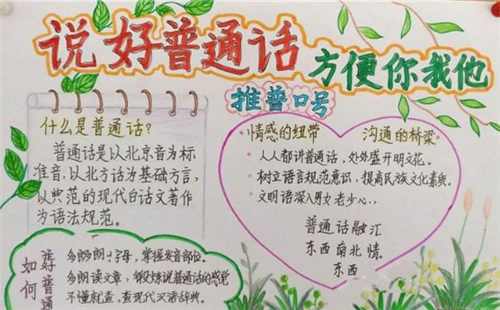 说好普通话
方便你我他
推普口号
什么是普通话?
普通话是以北京音为标
准音,以北方话为基础方言,
以典范的现代白话文著作
为语法规范。
情感的纽带 沟通的桥梁
·人人都讲普通话,处处盛开文明花。
·树立语言规范意识,提高民族文化素质。
文明语深入男女老少心..
普通话融汇
东西南北情
东西
如何
普通
多朗朗 字母,掌握发音部位。
多朗读文章,锻炼说普通话的感觉
不懂就查,查现代汉语辞典。